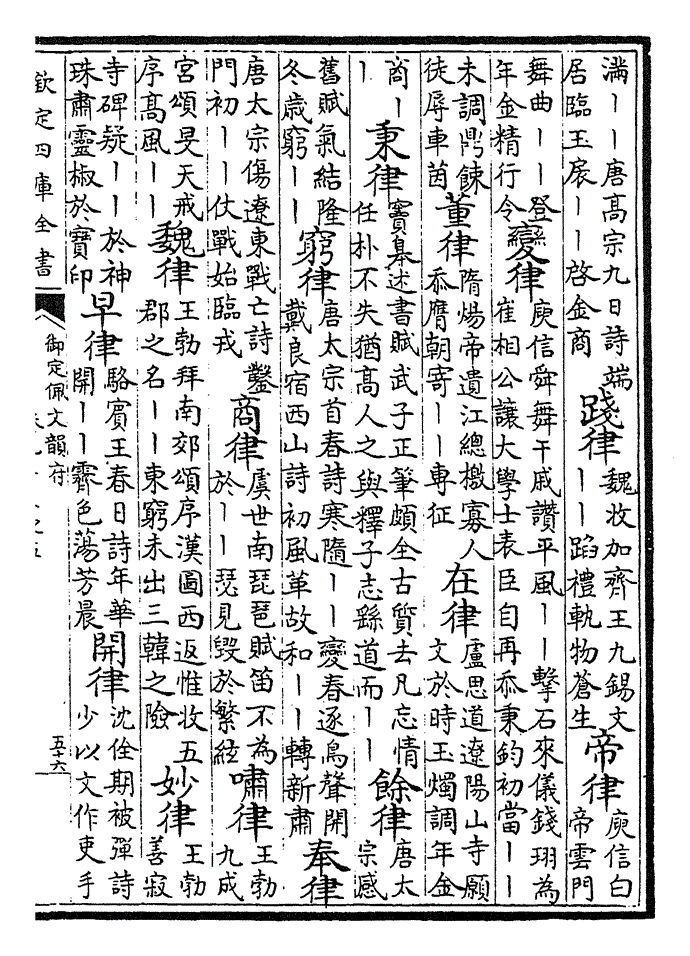 滿丨丨唐高宗九日詩端
居臨玉扆丨丨啓金商
踐律
魏收加齊王九錫文
丨丨蹈禮軌物蒼生
帝律
庾信白
帝雲門
舞曲丨丨登
年金精行令
變律
庾信舜舞干戚讚平風丨丨擊石來儀錢珝為
崔相公讓大學士表臣自再忝秉鈞初當丨丨
未調鼎餗
徒辱車茵
董律
隋煬帝遺江總檄寡人
忝膺朝寄丨丨專征
在律
盧思道遼陽山寺願
文於時玉燭調年金
商丨
丨
秉律
竇臮述書賦武子正筆頗全古質去凡忘情
任朴不失猶高人之與釋子志繇道而丨丨
餘律
唐太
宗感
舊賦氣結隆
冬歲窮丨丨
窮律
唐太宗首春詩寒隨丨丨變春逐鳥聲開
戴良宿西山詩初風革故和丨丨轉新肅
奉律
唐太宗傷遼東戰亡詩鑿
門初丨丨仗戰始臨戎
商律
虞世南琵琶賦笛不為
於丨丨瑟見毀於繁絃
嘯律
王勃
九成
宮頌旻天戒
序高風丨丨
魏律
王勃拜南郊頌序漢圖西返惟收五
郡之名丨丨東窮未出三韓之險
妙律
王勃
善寂
寺碑疑丨丨於神
珠肅靈椒於寶印
早律
駱賓王春日詩年華
開丨丨霽色蕩芳晨
開律
沈佺期被彈詩
少以文作吏手
欽定四庫全書
御定佩文韻府
五十六